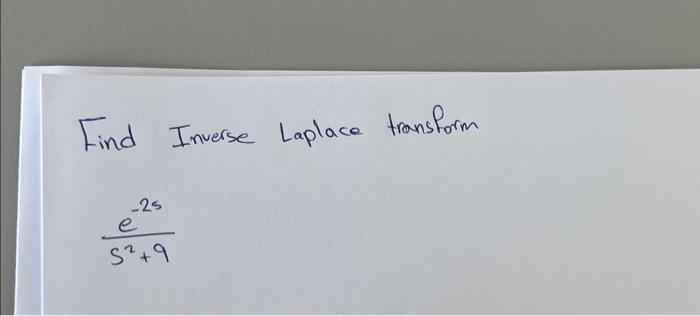 Find Inverse Laplace transform
e^-2s
s²+9